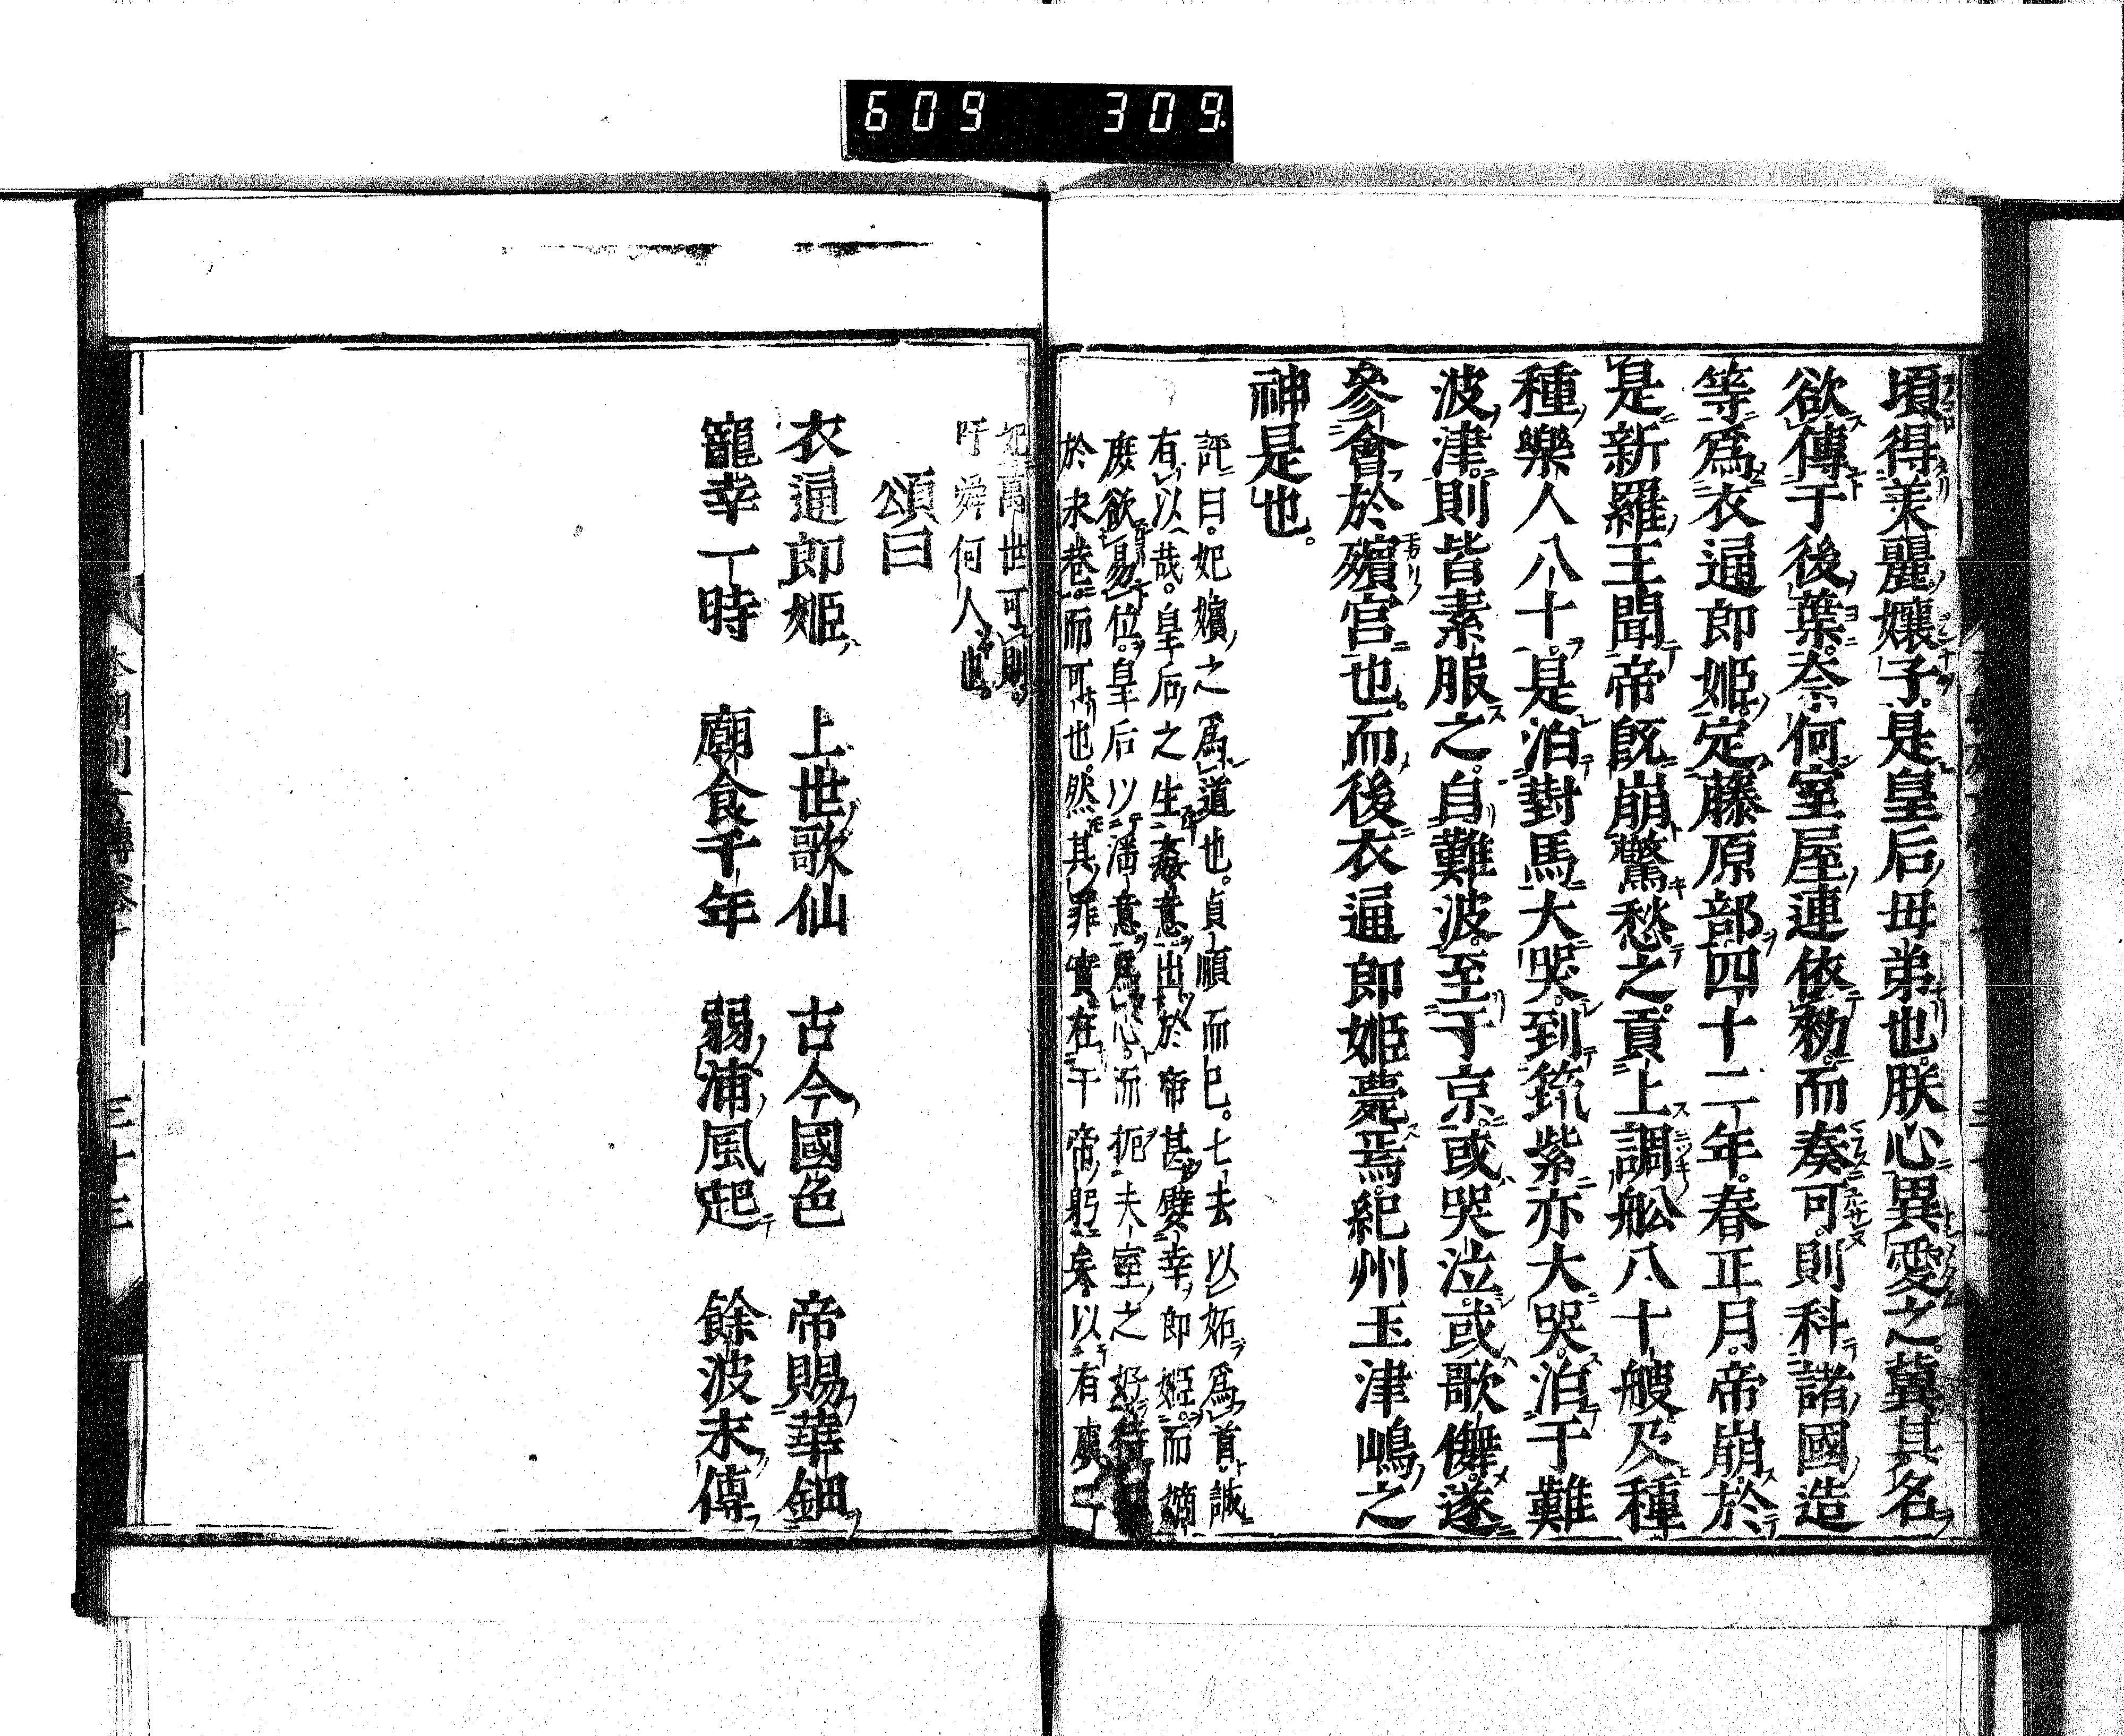 609 309
頃得美麗孃子是皇后毋弟也朕心異愛之冀其名
欲傳于後葉奈何室屋連依勑而奏可則科諸國造
等爲衣通郎姬定藤原部四十二年春正月帝崩於
是新羅王聞帝旣崩驚愁之貢上調舩八十艘及種
種樂人八十是泊對馬大哭到筑紫亦大哭泊于難
波津則皆素服之自難波至于京或哭泣或歌儛遂
參會於殯宮也而後衣通郎姬薨焉紀州玉津嶋之
神是也
評曰妃嬪之爲道也貞順而已七去以妬爲首誠
有以哉皇后之生姦意出於帝甚嬖幸郎姬而嫡
庶欲易位皇后以滿意爲心而扼夫室之好
於未巷而可也然其罪實在于帝躬矣以有虞二
妃萬世可則
吁舜何人也
頌曰
衣通郎姬 上世歌仙 古今國色 帝賜華鈿
寵幸一時 廟食千年 弱浦風起 餘波末傳